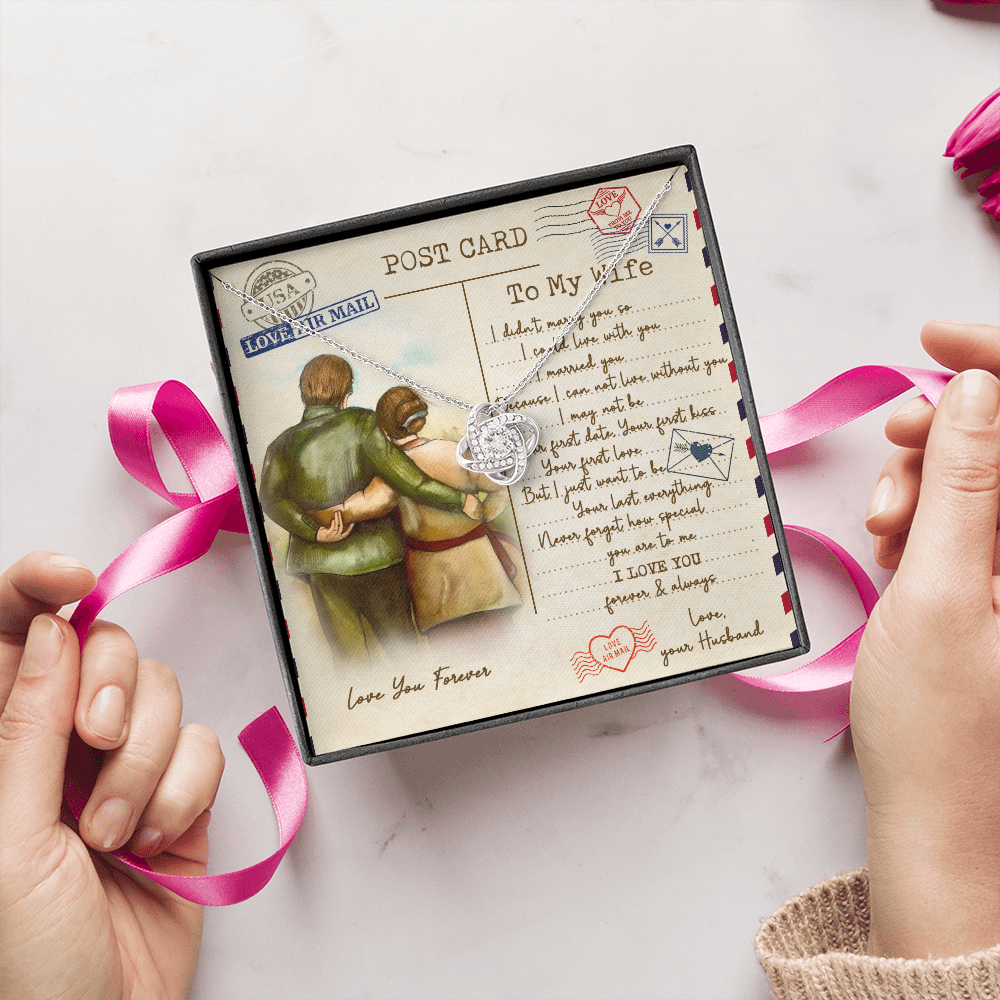 POST CARD
LOVE
FROM ME
TO YOU
USA
LOVE AIR MAIL
To My Wife
I didn't marry you so
I could live with you
I married you
because I can not live without you
I may not be
first date, Your first kiss
Your first love
But I just want to be
Your last everything
Never forget how special
you are to me
I LOVE YOU
forever & always
Love,
your Husband
LOVE
AIR MAIL
Love You Forever